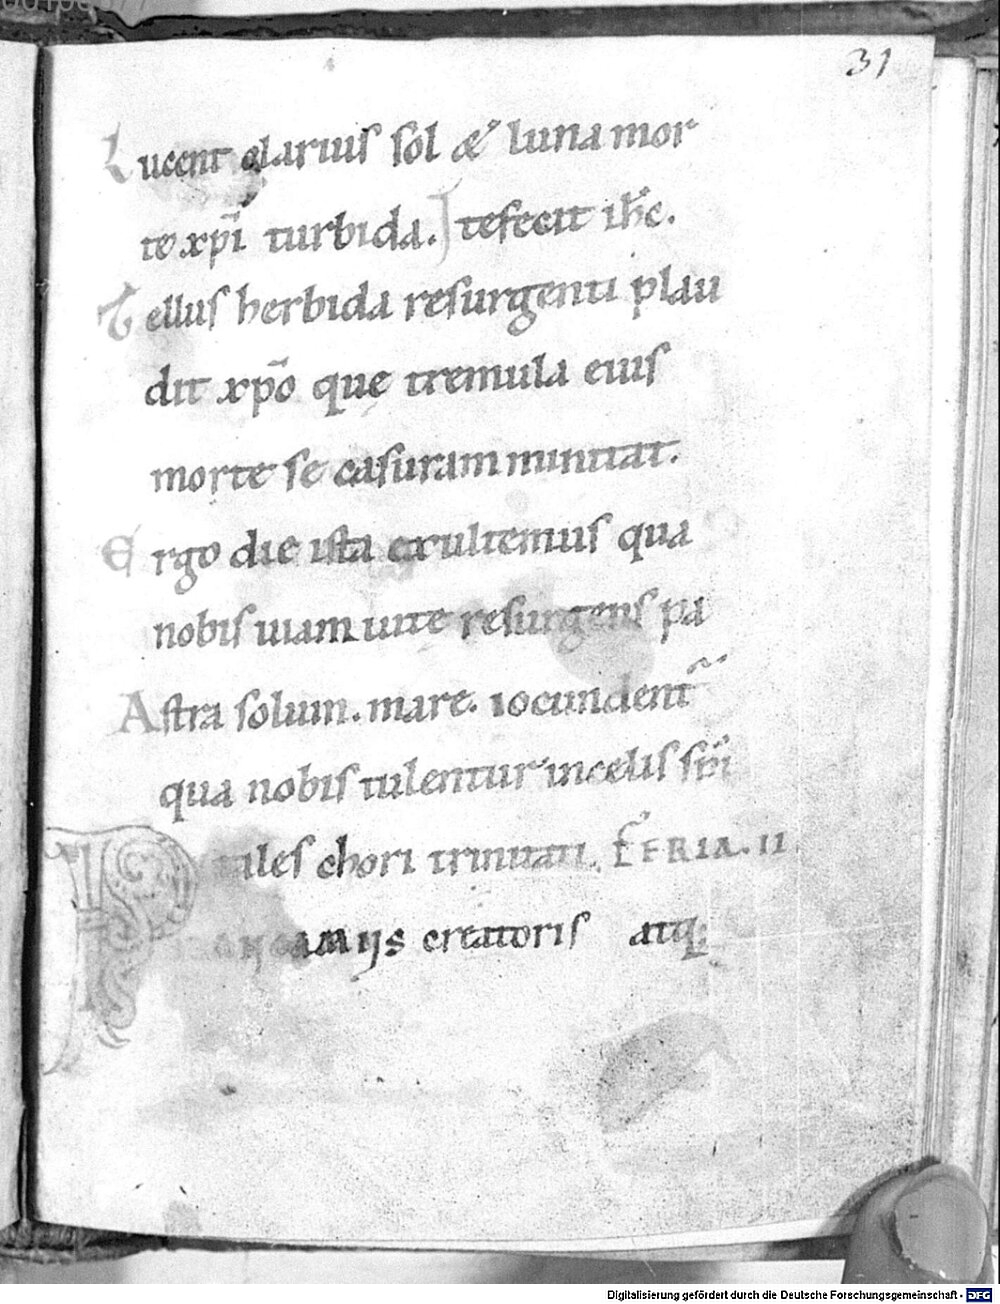 31
Lucent clarius sol & luna mor
te xp̄i turbida. tefecit ih̄c.
Tellus herbida resurgenti plau
dit xp̄o que tremula eius
morte se casuram minitat.
Ergo die ista exultemus qua
nobis uiam uite resurgens pa
Astra solum. mare. iocundent̄
qua nobis tulentur incelis sp̄i
tales chori trinitati. FERIA. II.
creatoris atq;
Digitalisierung gefördert durch die Deutsche Forschungsgemeinschaft - DFG